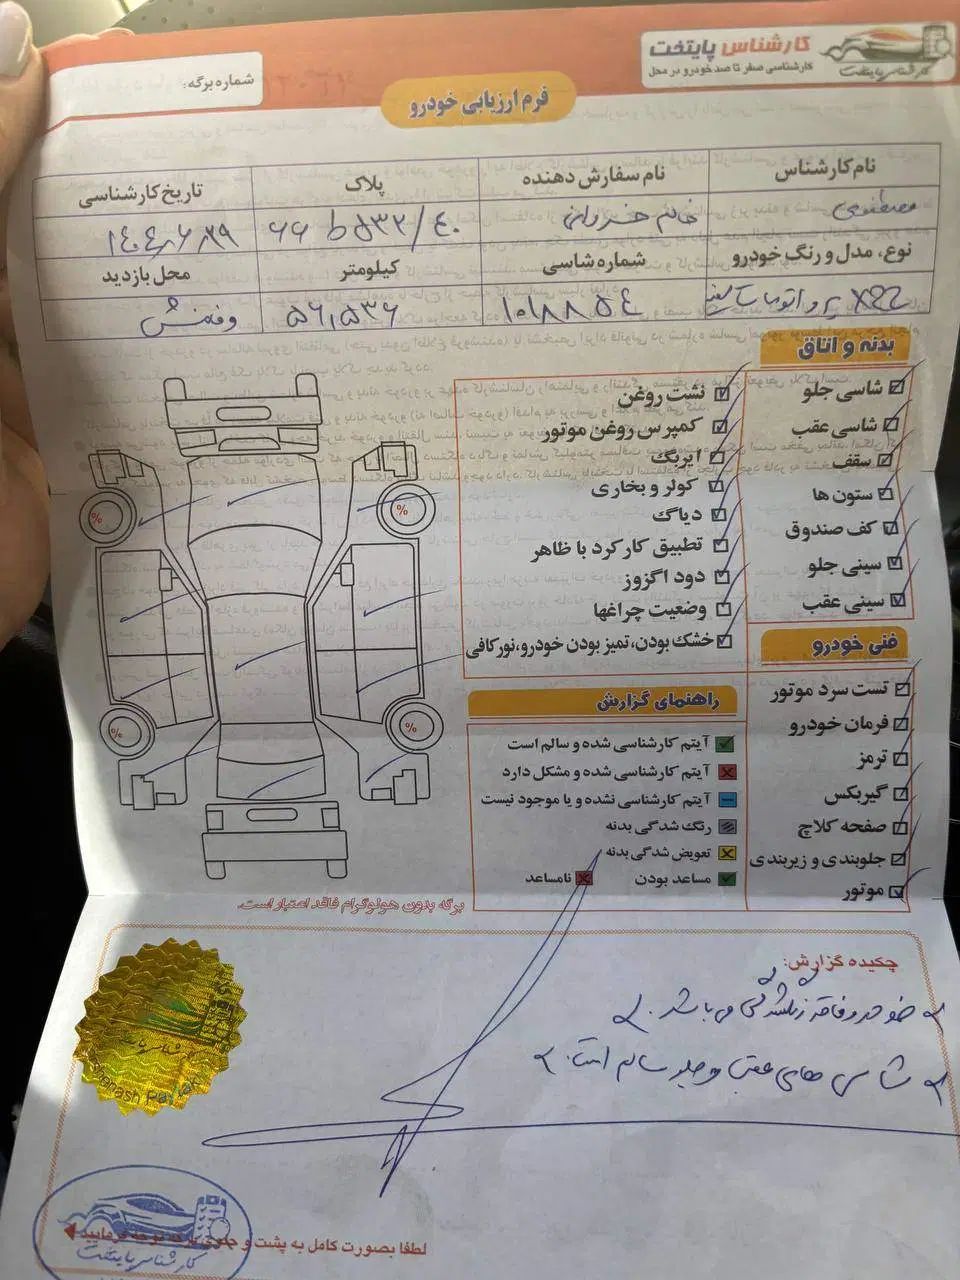 کارشناس پایتخت
کارشناسی صفر تا صد خودرو در محل
کارشناس پایتخت
شماره برگه:
فرم ارزیابی خودرو
نام کارشناس
نام سفارش دهنده
پلاک
تاریخ کارشناسی
مصطفوی
خانم خسروانی
۶۶ ط ۵۳۲/۴۰
۱۴۰۴،۶،۲۹
نوع، مدل و رنگ خودرو
شماره شاسی
کیلومتر
محل بازدید
X22 پرو اتومات سفید
۱۰۱۸۸۵۴
۵۶,۵۳۶
بدنه و اتاق
شاسی جلو
شاسی عقب
سقف
ستون ها
کف صندوق
سینی جلو
سینی عقب
نشت روغن
کمپرس روغن موتور
ایربگ
کولر و بخاری
دیاگ
تطبیق کارکرد با ظاهر
دود اگزوز
وضعیت چراغها
خشک بودن، تمیز بودن خودرو، نور کافی
%
%
%
%
فنی خودرو
تست سرد موتور
فرمان خودرو
ترمز
گیربکس
صفحه کلاچ
جلوبندی و زیربندی
موتور
راهنمای گزارش
آیتم کارشناسی شده و سالم است
آیتم کارشناسی شده و مشکل دارد
آیتم کارشناسی نشده و یا موجود نیست
رنگ شدگی بدنه
تعویض شدگی بدنه
مساعد بودن
نامساعد
برگه بدون هولوگرام فاقد اعتبار است.
چکیده گزارش:
خودرو فاقد رنگ شدگی می باشد.
شاسی های عقب و جلو سالم است.
لطفا بصورت کامل به پشت و جلوی برگه توجه فرمایید
کارشناس پایتخت